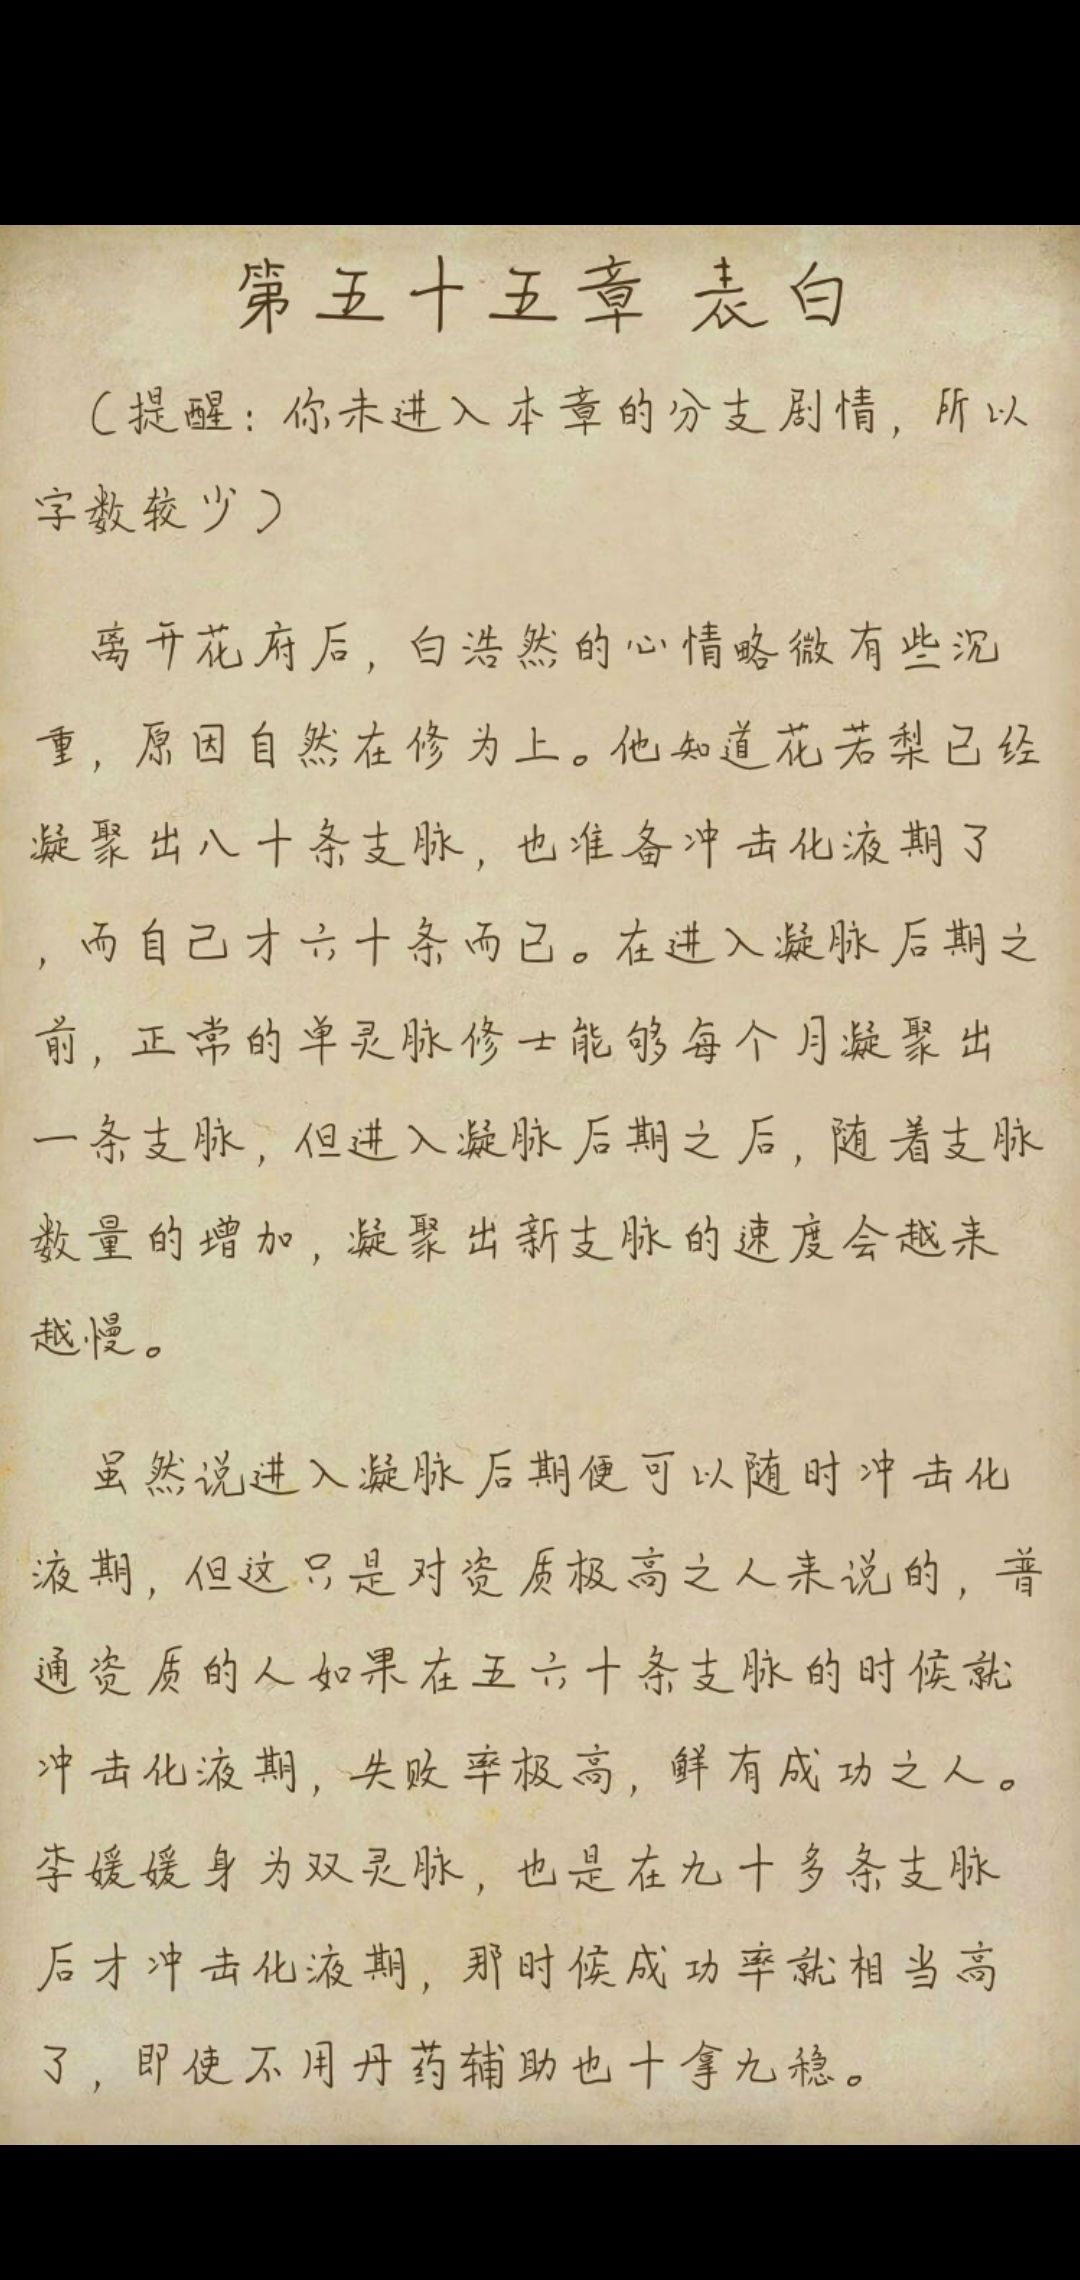 第五十五章 表白
（提醒：你未进入本章的分支剧情，所以
字数较少）
离开花府后，白浩然的心情略微有些沉
重，原因自然在修为上。他知道花若梨已经
凝聚出八十条支脉，也准备冲击化液期了
，而自己才六十条而已。在进入凝脉后期之
前，正常的单灵脉修士能够每个月凝聚出
一条支脉，但进入凝脉后期之后，随着支脉
数量的增加，凝聚出新支脉的速度会越来
越慢。
虽然说进入凝脉后期便可以随时冲击化
液期，但这只是对资质极高之人来说的，普
通资质的人如果在五六十条支脉的时候就
冲击化液期，失败率极高，鲜有成功之人。
李媛媛身为双灵脉，也是在九十多条支脉
后才冲击化液期，那时候成功率就相当高
了，即使不用丹药辅助也十拿九稳。